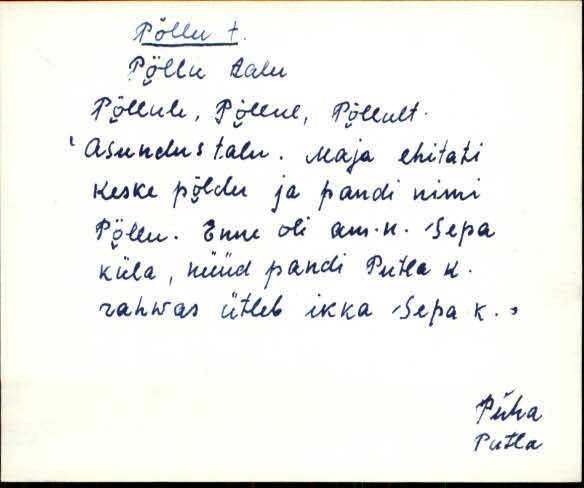 Põllu t.
Põ̭llu talu
Põ̭llule, Põ̭llul, Põ̭llult.
'Asundustalu. Maja ehitati
keske põ̭ldu ja pandi nimi
Põ̭llu. Enne oli am.n. Sepa
küla, nüüd pandi Putla k.
rahwas ütleb ikka Sepa k.,
Püha
Putla